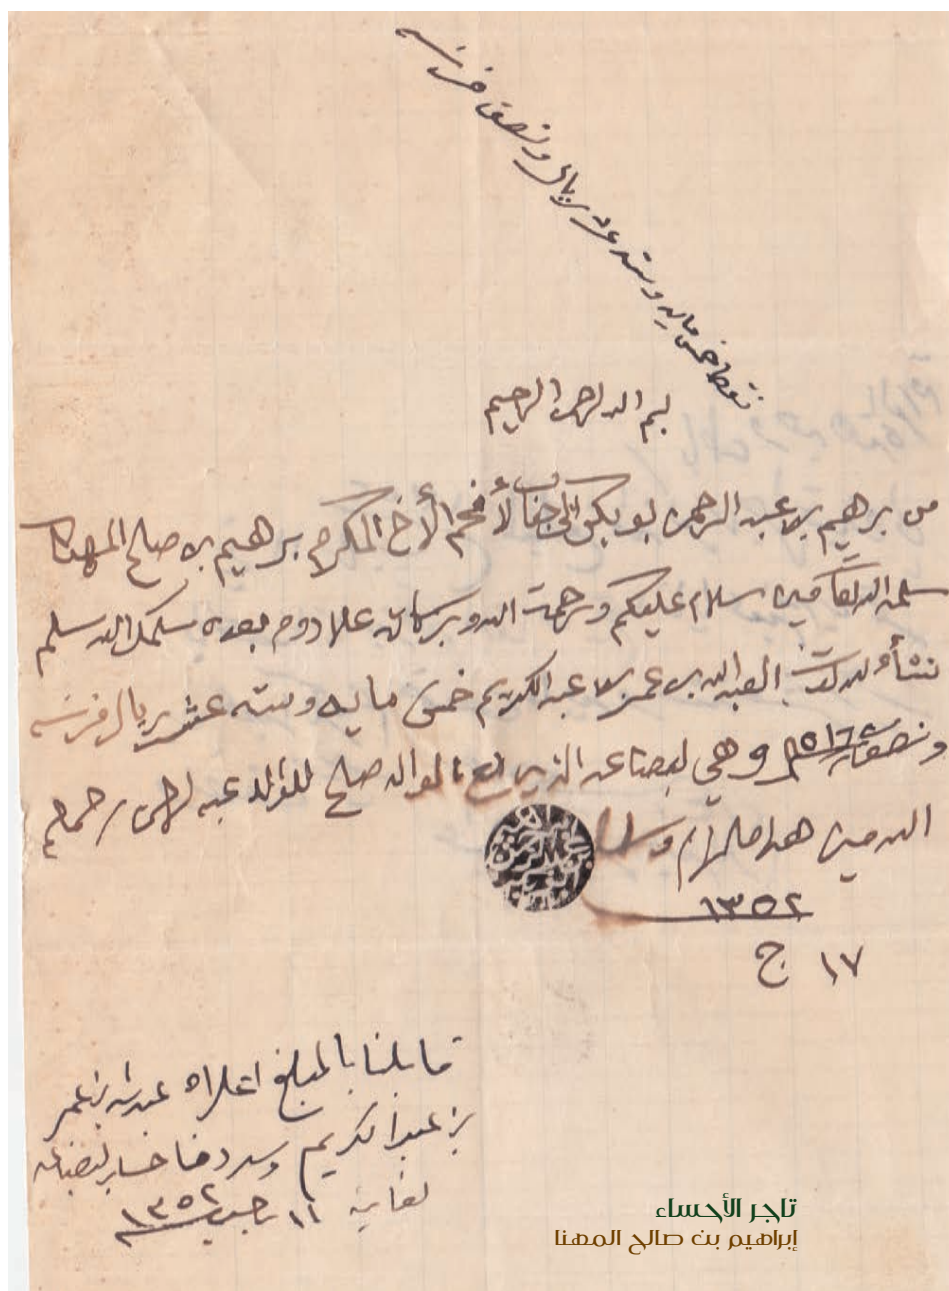 نقط خمس مايه وسته عشر ريال ونصف فرنسه
بسم الله الرحمن الرحيم
من برهيم بن عبد الرحمن بو بكر إلى جناب لأفخم الأخ المكرم برهيم بن صالح المهنا
سلمه الله تعا مين سلام عليكم ورحمت الله وبركاته علا دوم بعده سلمك الله سلم
العبد الله بن عمر بن عبد الكريم خمس مايه وسته عشر ريال فرنسه
ونصف ٥١٦ وهي بضاعه الذي مع الوالد صالح للوالد عبد الرحمن رحمهم
الله مين هذا ما لزم وسلام
١٣٥٢
١٧ ج
قابلنا بالمبلغ اعلاه عبد الله بن عمر
بن عبد الكريم وسددنا حساب بضاعه
لغاية ١١ رجب ١٣٥٢
تاجر الأحساء
إبراهيم بن صالح المهنا